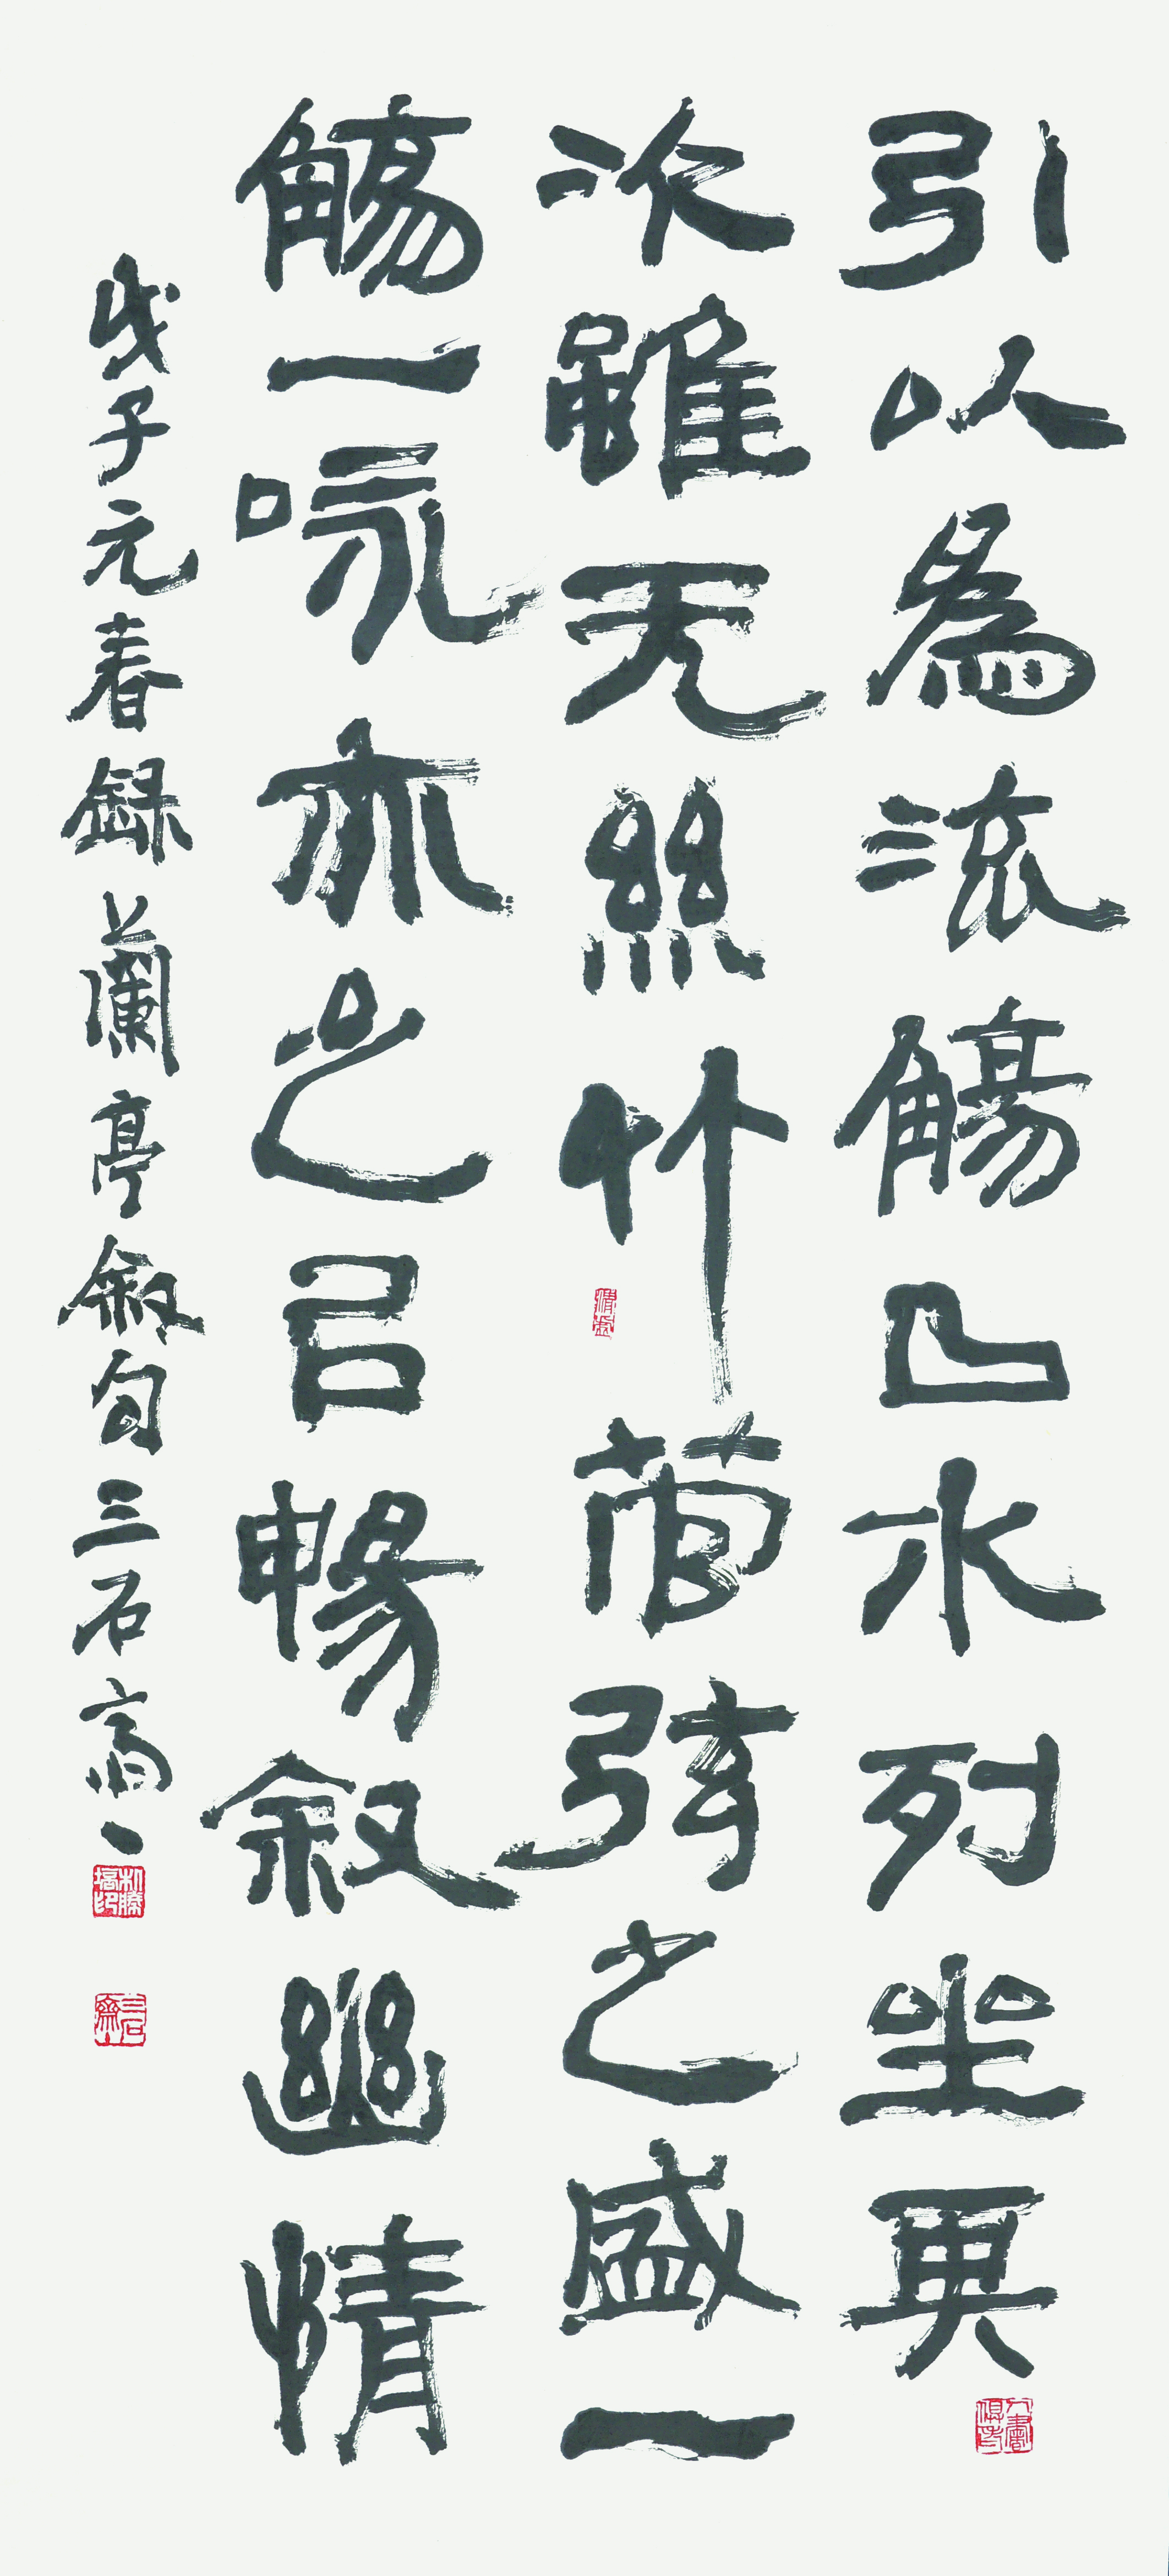 引以為流觴曲水列坐其
次雖无絲竹管弦之盛一
觴一詠亦足以暢敘幽情
戊子元春録蘭亭敘句三石齋
三石齋